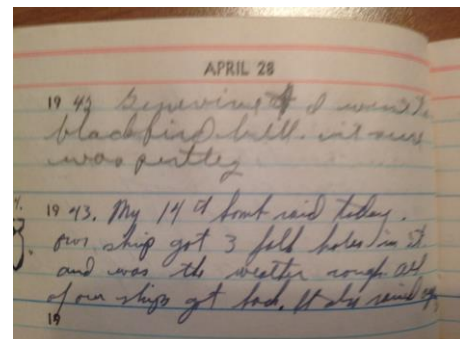 APRIL 28
19 42 Genevine & I went to
blackbird hill. it sure
was pretty
19 43. My 14th bomb raid today.
our ship got 3 holes in it
and was the weather rough. All
of our ships got back. It also rained
19